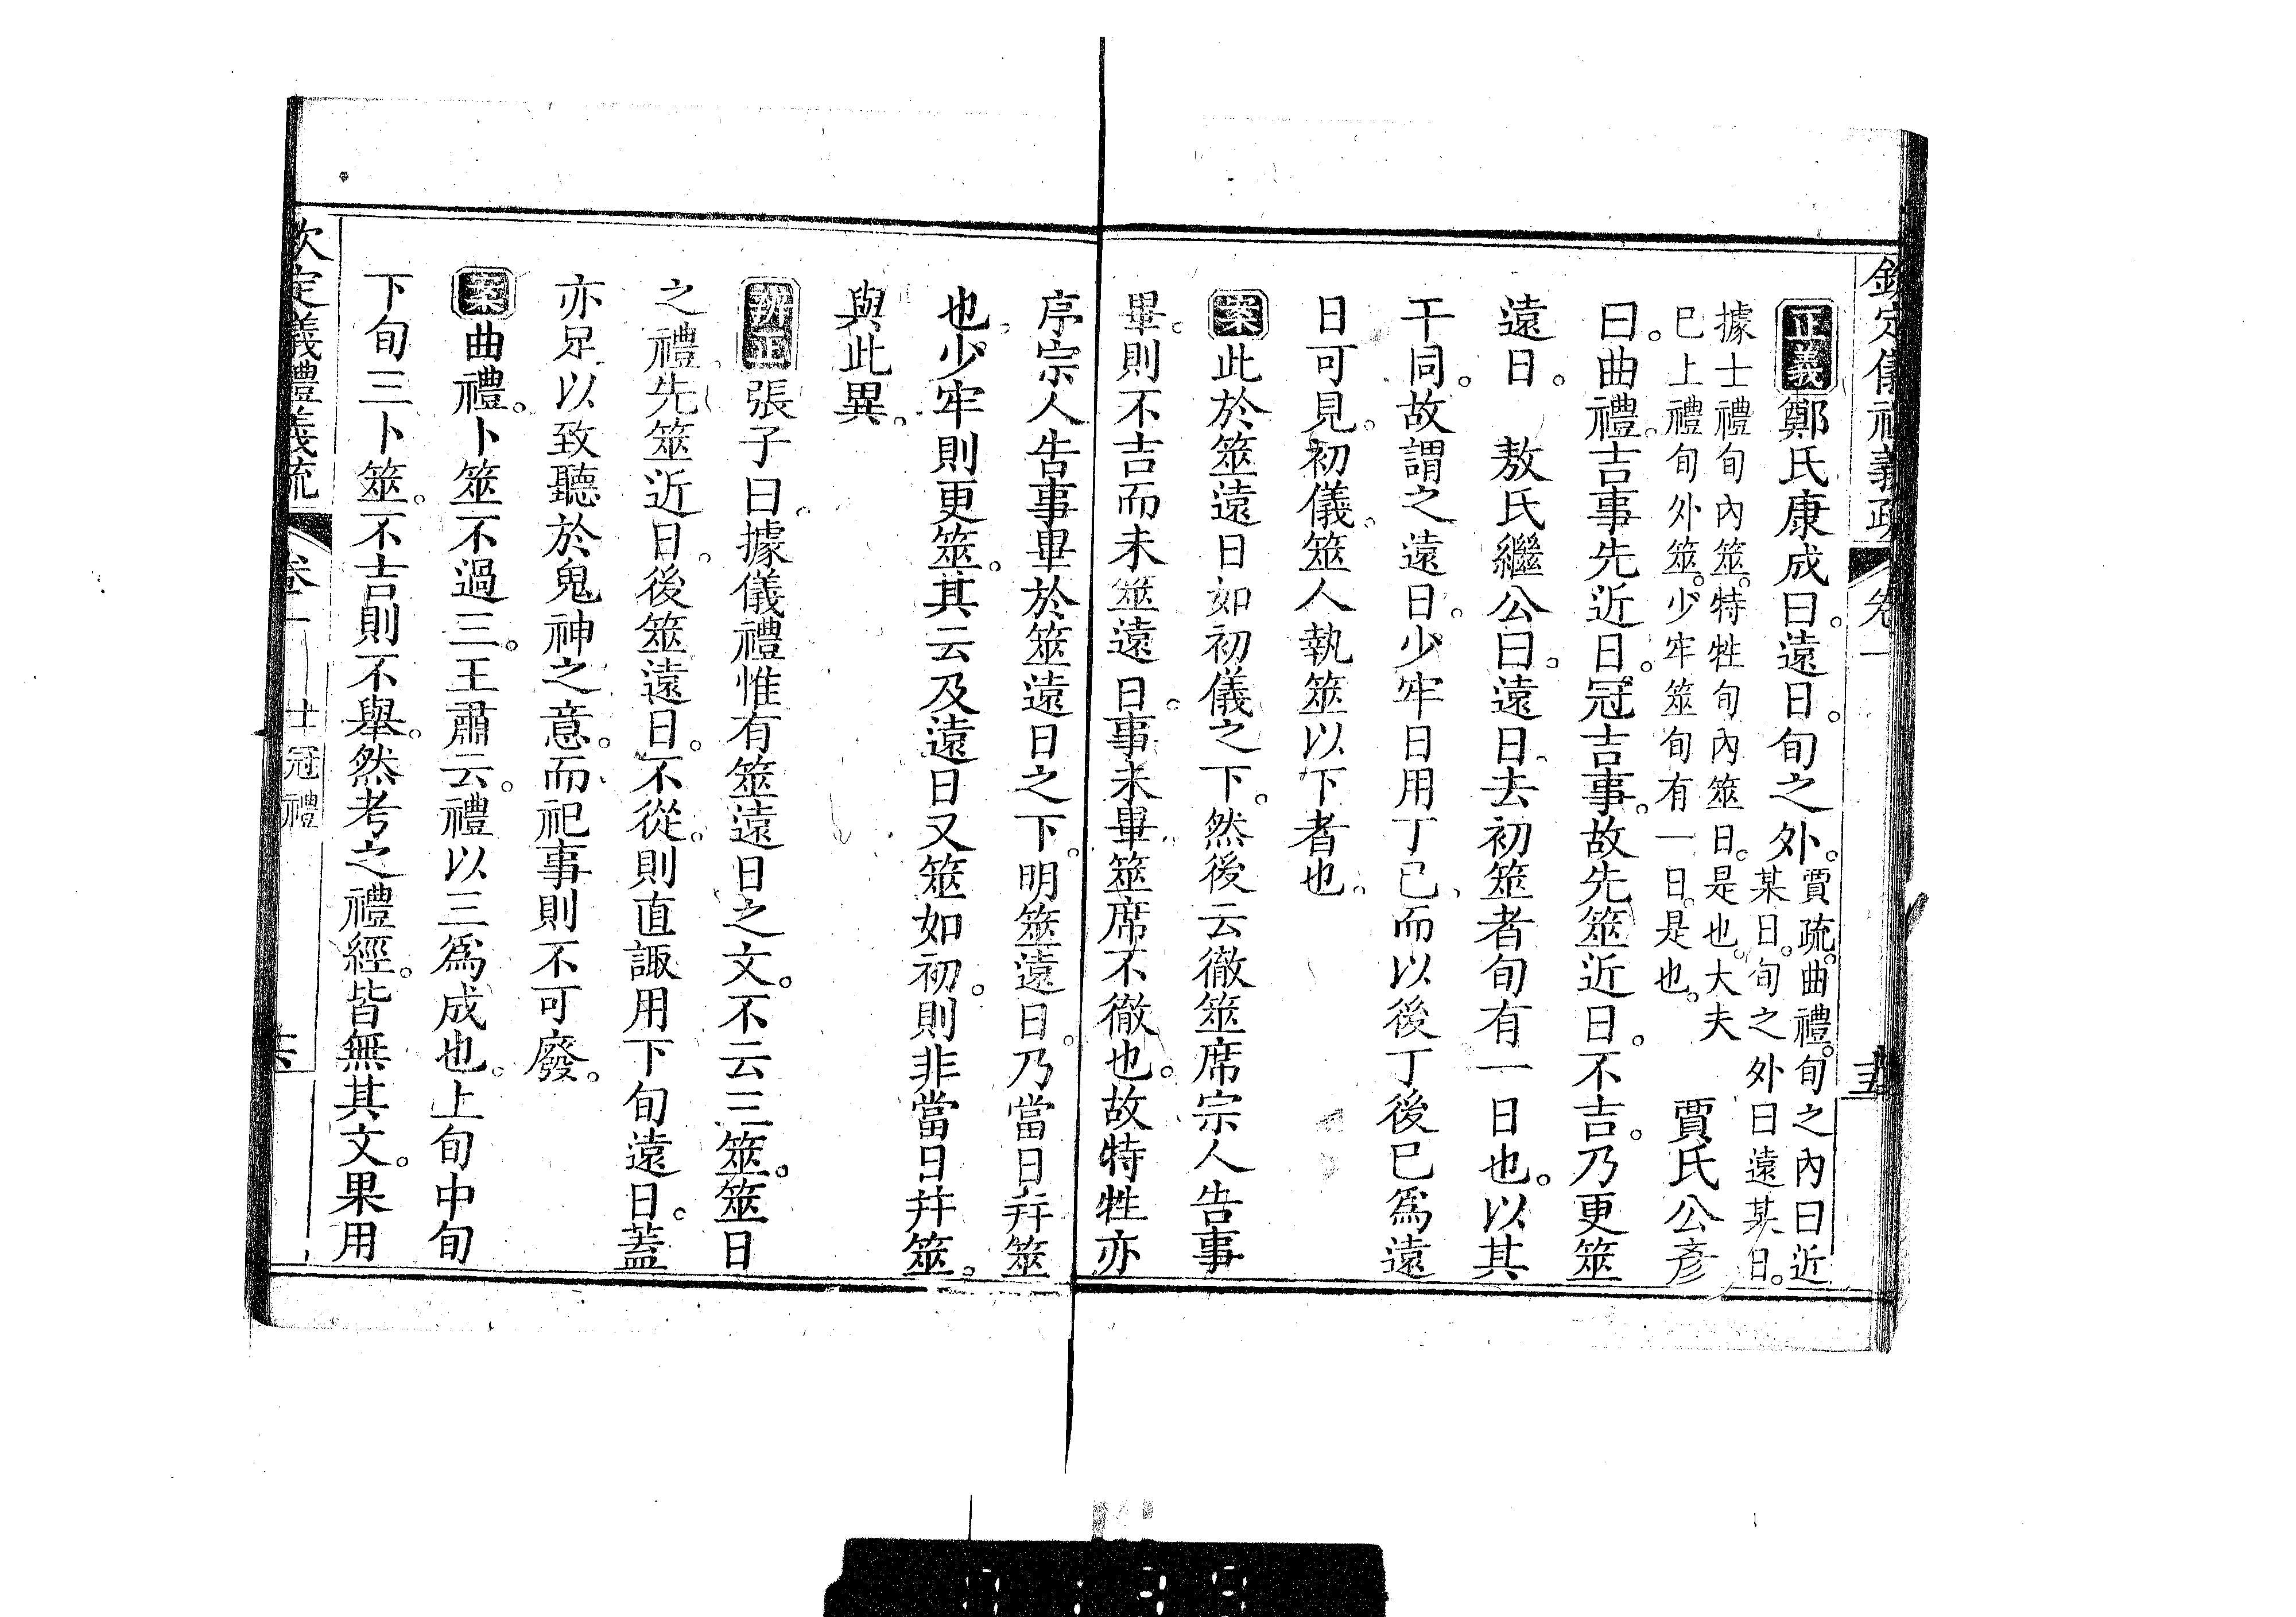 欽定儀禮義疏 卷一
正義鄭氏康成曰。遠日。旬之外。賈疏。曲禮。旬之內曰近
某日。旬之外曰遠某日。
據士禮旬內筮。特牲旬內筮日。是也。大夫
已上禮旬外筮。少牢筮旬有一日。是也。 賈氏公彥
曰。曲禮。吉事先近日。冠吉事。故先筮近日。不吉。乃更筮
遠日。 敖氏繼公曰。遠日。去初筮者旬有一日也。以其
干同。故謂之遠日。少牢日用丁已。而以後丁後已爲遠
日可見。初儀。筮人執筮以下者也。
案此於筮遠日如初儀之下。然後云徹筮席宗人告事
畢。則不吉而未筮遠日。事未畢。筮席不徹也。故特牲亦
序宗人告事畢於筮遠日之下。明筮遠日。乃當日幷筮
也。少牢則更筮。其云及遠日又筮如初。則非當日幷筮。
與此異。
辨正張子曰。據儀禮惟有筮遠日之文。不云三筮。筮日
之禮。先筮近日。後筮遠日。不從。則直諏用下旬遠日。蓋
亦足以致聽於鬼神之意。而祀事則不可廢。
案曲禮。卜筮不過三。王肅云。禮以三爲成也。上旬中旬
下旬三卜筮。不吉則不舉。然考之禮經。皆無其文。果用
欽定儀禮義疏 卷一 士冠禮 六